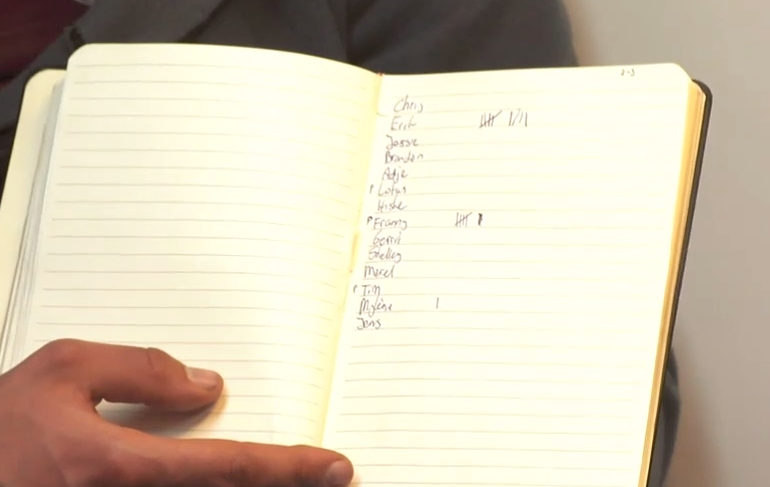 2-3
Chris
Erik
Jossie
Brandon
Adje
Lotus
Hiske
Franny
Gerrit
Shelley
Merel
Tim
Mylène
Jens